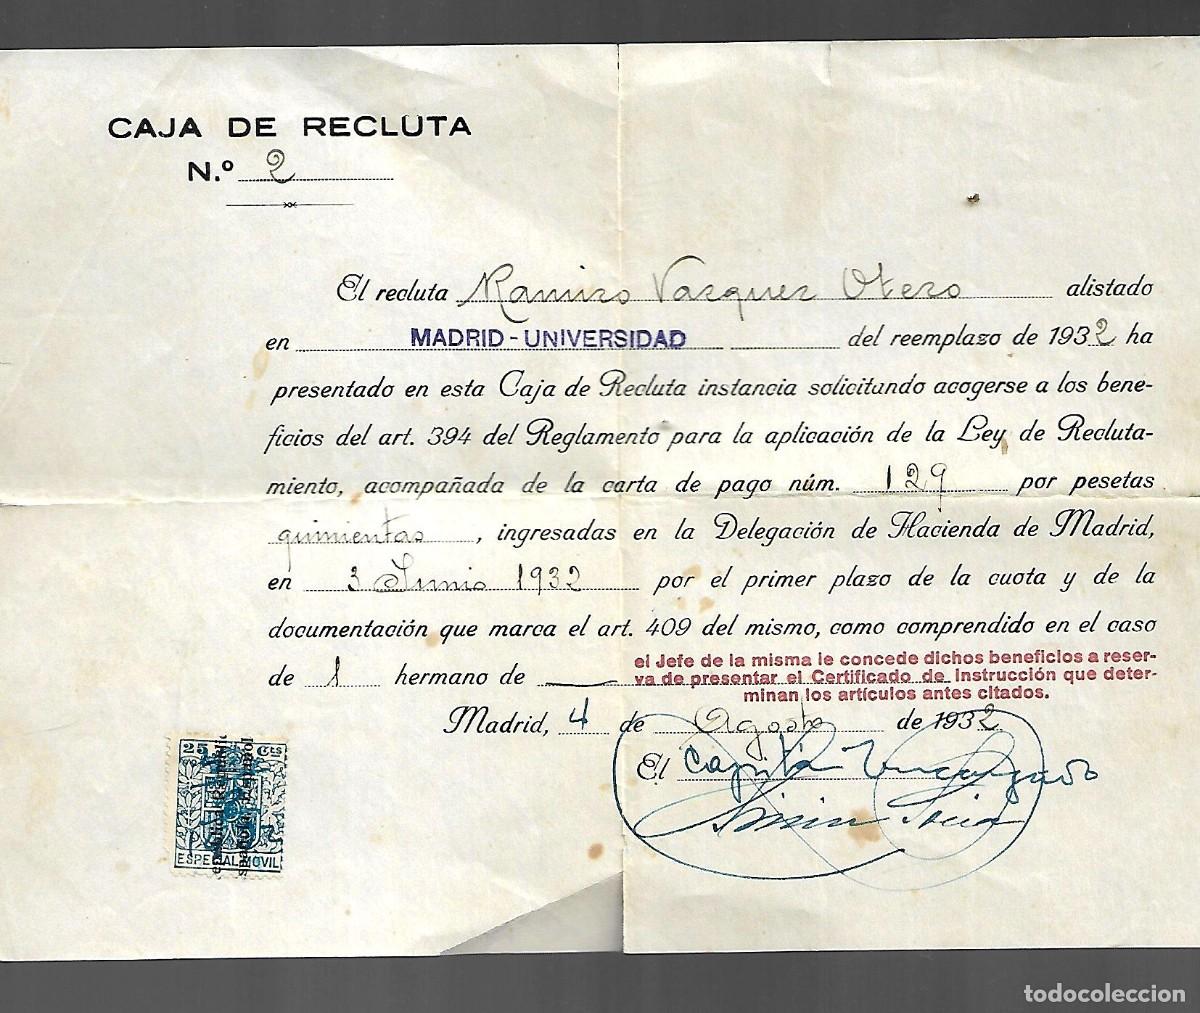 CAJA DE RECLUTA
N.º 2
El recluta Ramiro Vazquez Otero alistado
en MADRID - UNIVERSIDAD del reemplazo de 1932 ha
presentado en esta Caja de Recluta instancia solicitando acogerse a los bene-
ficios del art. 394 del Reglamento para la aplicación de la Ley de Recluta-
miento, acompañada de la carta de pago núm. 129 por pesetas
quinientas, ingresadas en la Delegación de Hacienda de Madrid,
en 3 Junio 1932 por el primer plazo de la cuota y de la
documentación que marca el art. 409 del mismo, como comprendido en el caso
de 1 hermano de
el Jefe de la misma le concede dichos beneficios a reser-
va de presentar el Certificado de Instrucción que deter-
minan los artículos antes citados.
Madrid, 4 de Agosto de 1932
El Capitán
25 CTS
ESPECIAL MOVIL
todocoleccion